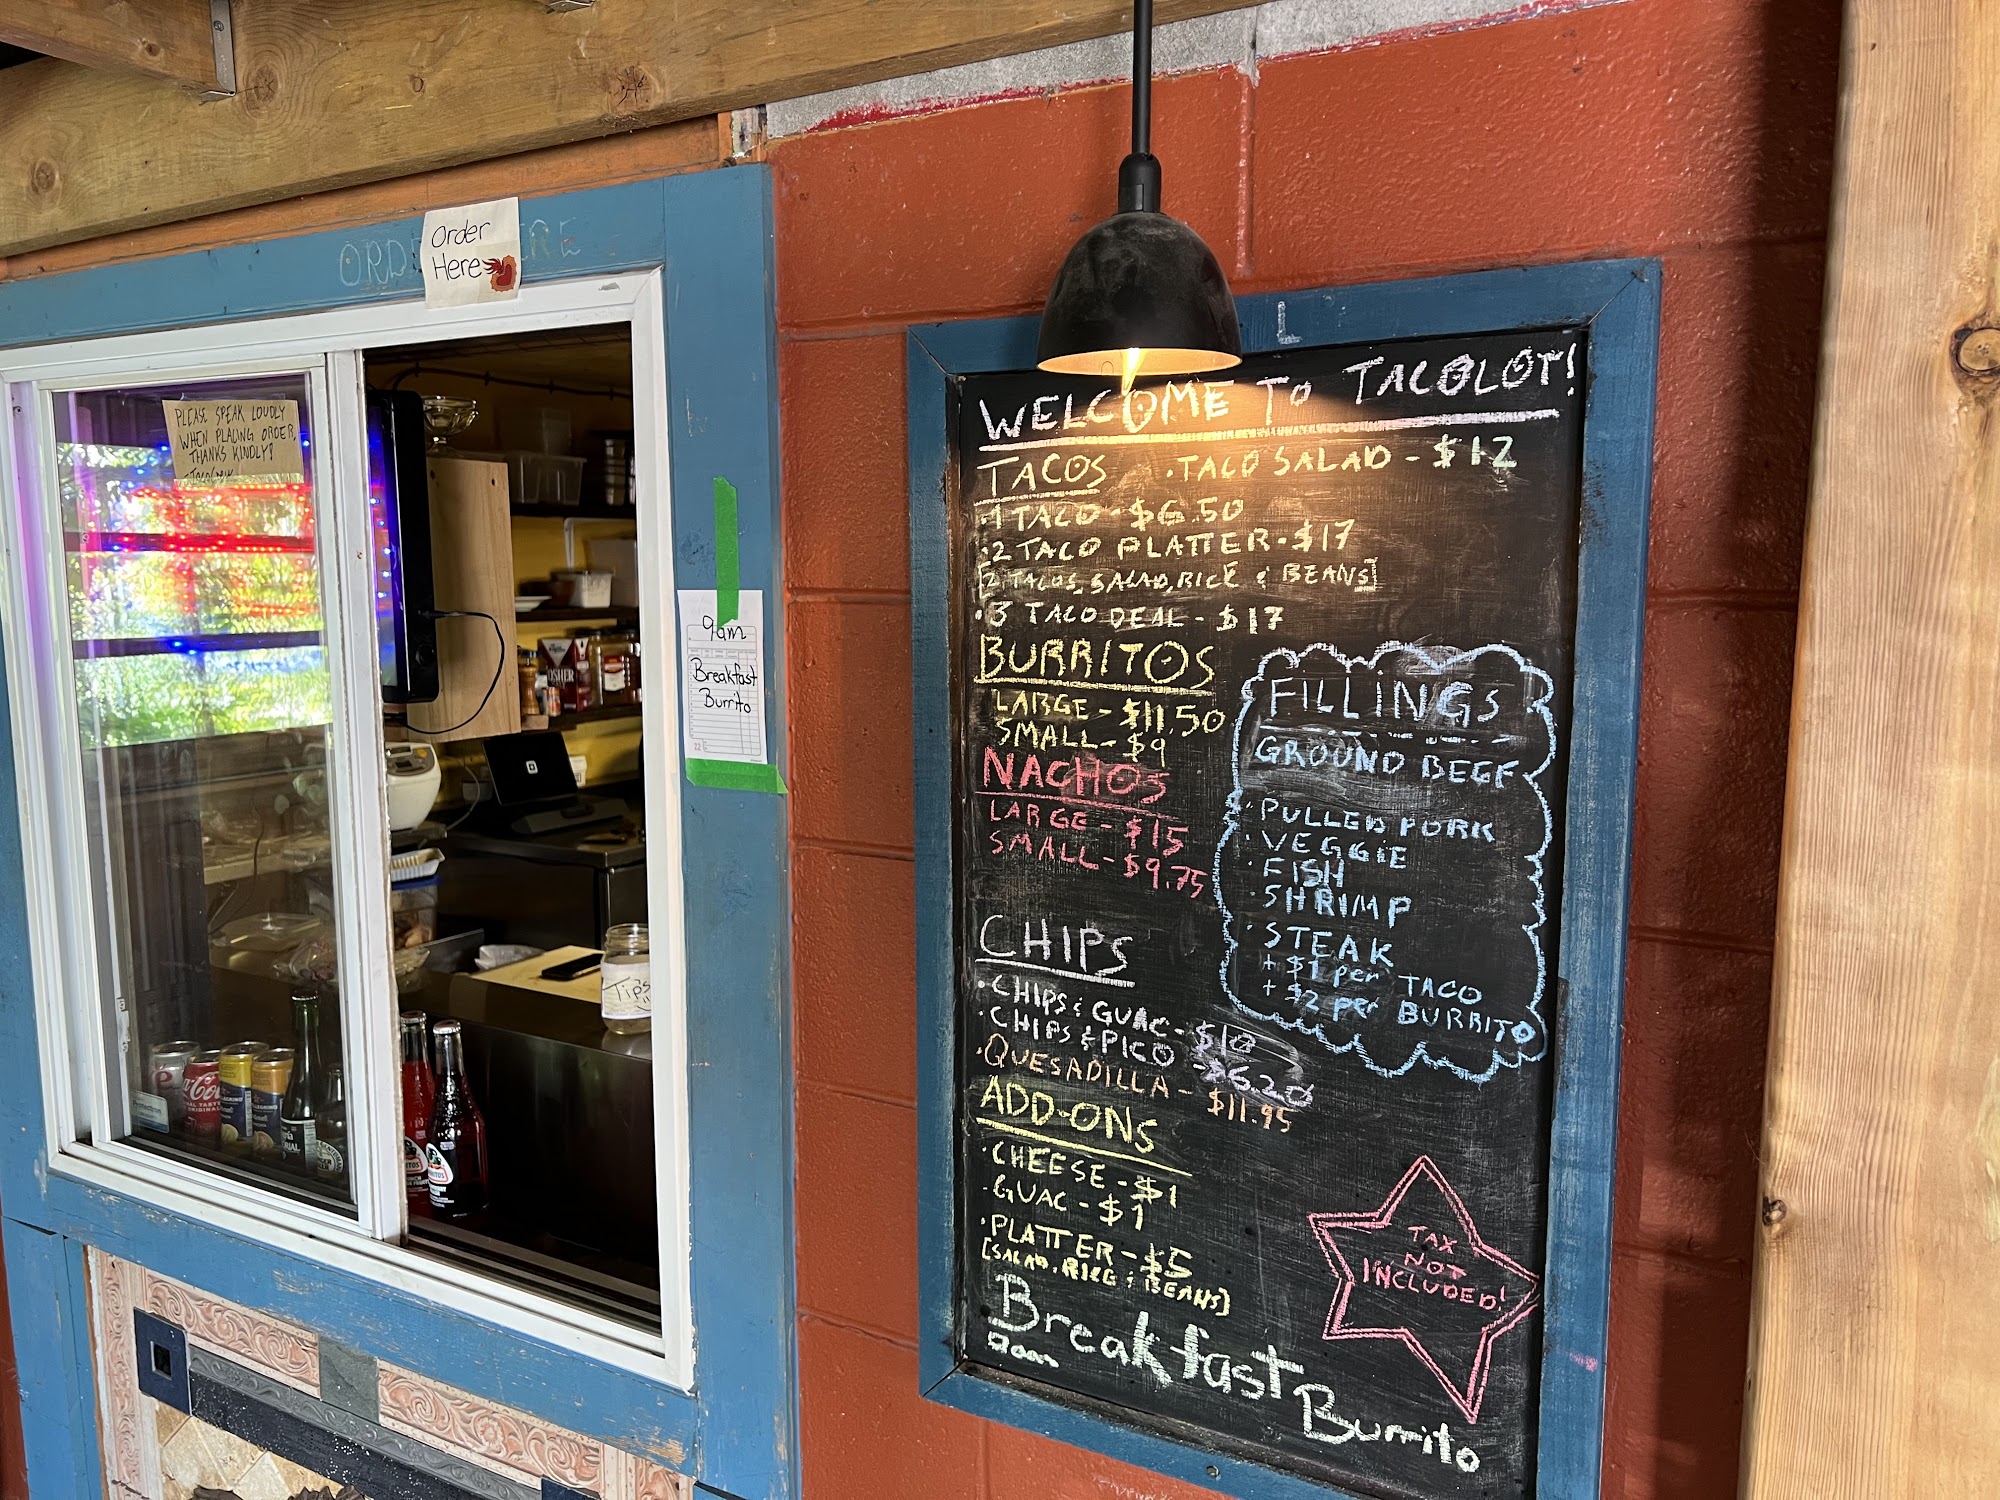 ORDE ERE
Order
Here
PLEASE SPEAK LOUDLY
WHEN PLACING ORDER,
THANKS KINDLY!
9am
Breakfast
Burrito
22
OSHER
Tips
Coca
L
WELCOME TO TACOLOT!
TACOS · TACO SALAD - $12
·1 TACO - $6.50
·2 TACO PLATTER - $17
[2 TACOS, SALAD, RICE & BEANS]
·3 TACO DEAL - $17
BURRITOS
LARGE - $11.50
SMALL - $9
NACHOS
LARGE - $15
SMALL - $9.75
CHIPS
·CHIPS & GUAC - $10
·CHIPS & PICO - $6.20
·QUESADILLA - $11.95
ADD-ONS
·CHEESE - $1
·GUAC - $1
·PLATTER - $5
[SALAD, RICE & BEANS]
Breakfast Burrito
9am
FILLINGS
GROUND BEEF
·PULLED PORK
·VEGGIE
·FISH
·SHRIMP
·STEAK
+ $1 per TACO
+ $2 per BURRITO
TAX
NOT
INCLUDED!